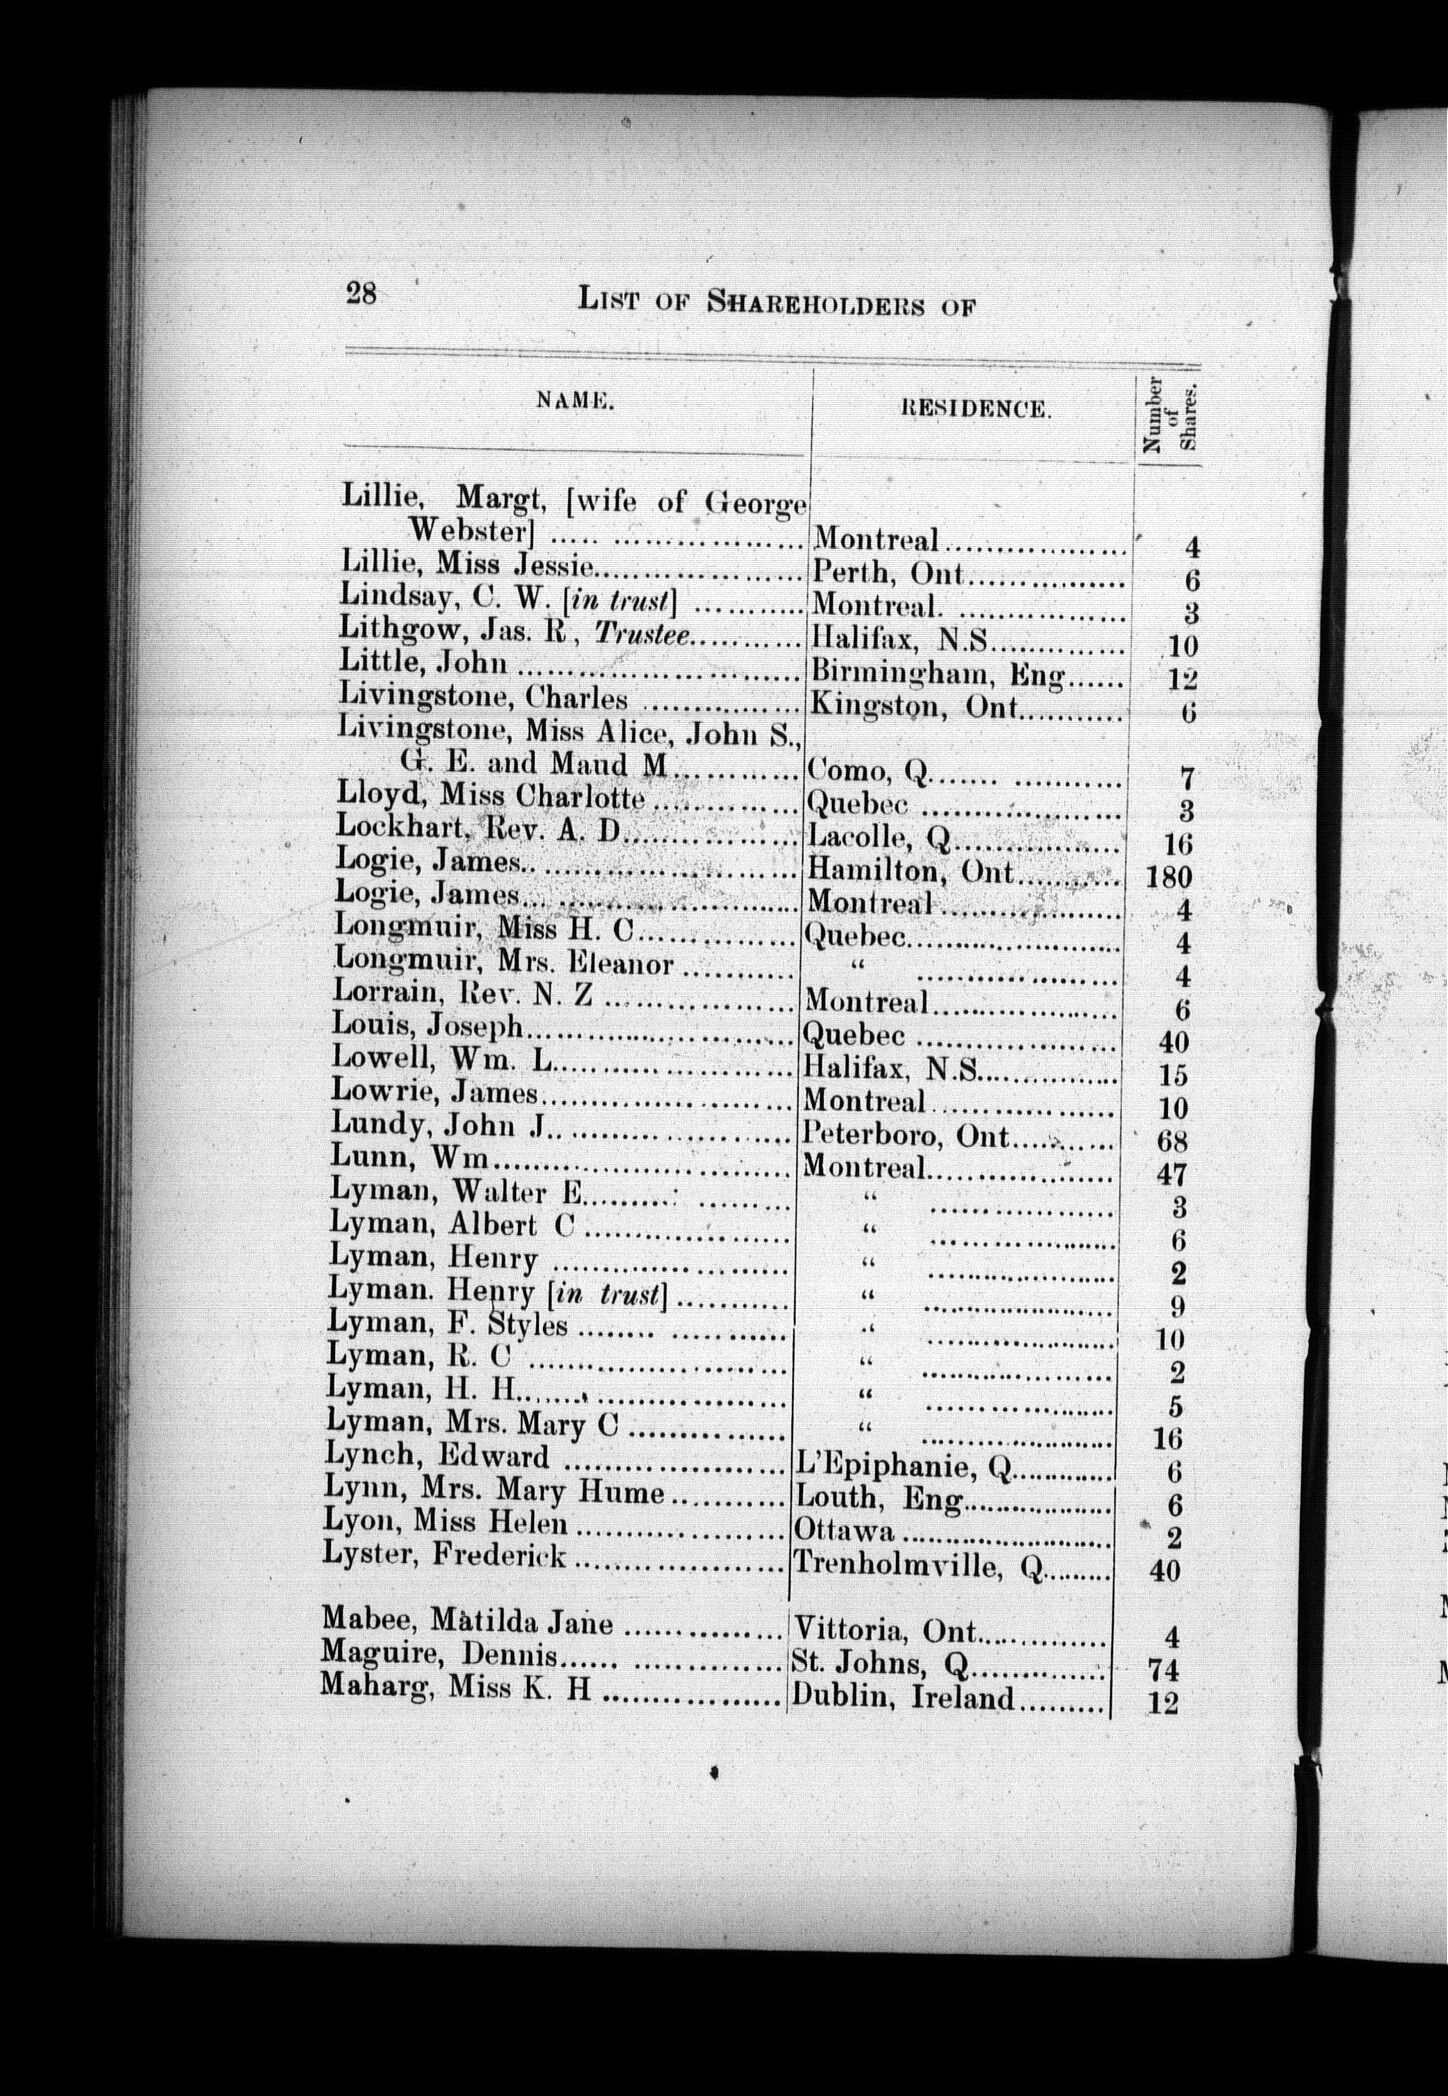 28 LIST OF SHAREHOLDERS OF
NAME. RESIDENCE. Number of Shares.
Lillie, Margt, [wife of George
Webster] ..... .................. Montreal.................. 4
Lillie, Miss Jessie..................... Perth, Ont................ 6
Lindsay, C. W. [in trust] ........... Montreal. ................. 3
Lithgow, Jas. R, Trustee........... Halifax, N.S.............. 10
Little, John ............................ Birmingham, Eng...... 12
Livingstone, Charles ................ Kingston, Ont........... 6
Livingstone, Miss Alice, John S.,
G. E. and Maud M............. Como, Q....... ........... 7
Lloyd, Miss Charlotte............... Quebec .................... 3
Lockhart, Rev. A. D.................. Lacolle, Q................. 16
Logie, James.. ......................... Hamilton, Ont........... 180
Logie, James............................ Montreal.................. 4
Longmuir, Miss H. C................ Quebec..................... 4
Longmuir, Mrs. Eleanor ........... “ .................... 4
Lorrain, Rev. N. Z ................... Montreal................... 6
Louis, Joseph........................... Quebec .................... 40
Lowell, Wm. L......................... Halifax, N.S.............. 15
Lowrie, James......................... Montreal.................. 10
Lundy, John J.. ...................... Peterboro, Ont.......... 68
Lunn, Wm.............................. Montreal................... 47
Lyman, Walter E......... ......... “ ................... 3
Lyman, Albert C ..................... “ ................... 6
Lyman, Henry ........................ “ ................... 2
Lyman. Henry [in trust] ........... “ ................... 9
Lyman, F. Styles ........ ........... “ ................... 10
Lyman, R. C .......................... “ ................... 2
Lyman, H. H.......................... “ ................... 5
Lyman, Mrs. Mary C ............... “ ................... 16
Lynch, Edward ...................... L'Epiphanie, Q............ 6
Lynn, Mrs. Mary Hume........... Louth, Eng.................. 6
Lyon, Miss Helen ..................... Ottawa ........................ 2
Lyster, Frederick ..................... Trenholmville, Q......... 40
Mabee, Matilda Jane ................ Vittoria, Ont.............. 4
Maguire, Dennis...... ............... St. Johns, Q.............. 74
Maharg, Miss K. H .................. Dublin, Ireland......... 12